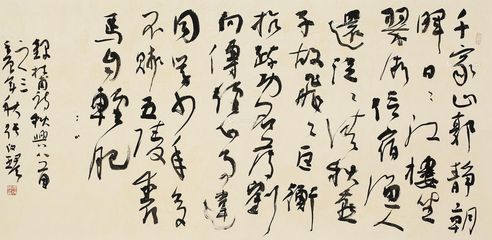 千家山郭靜朝
暉日々江樓坐
翠微信宿漁人
還泛々清秋燕
子故飛々匡衡
抗疏功名薄劉
向傳經心事違
同学少年多
不賤五陵衣
馬自輕肥
録杜甫詩秋興八首
之三
年秋張